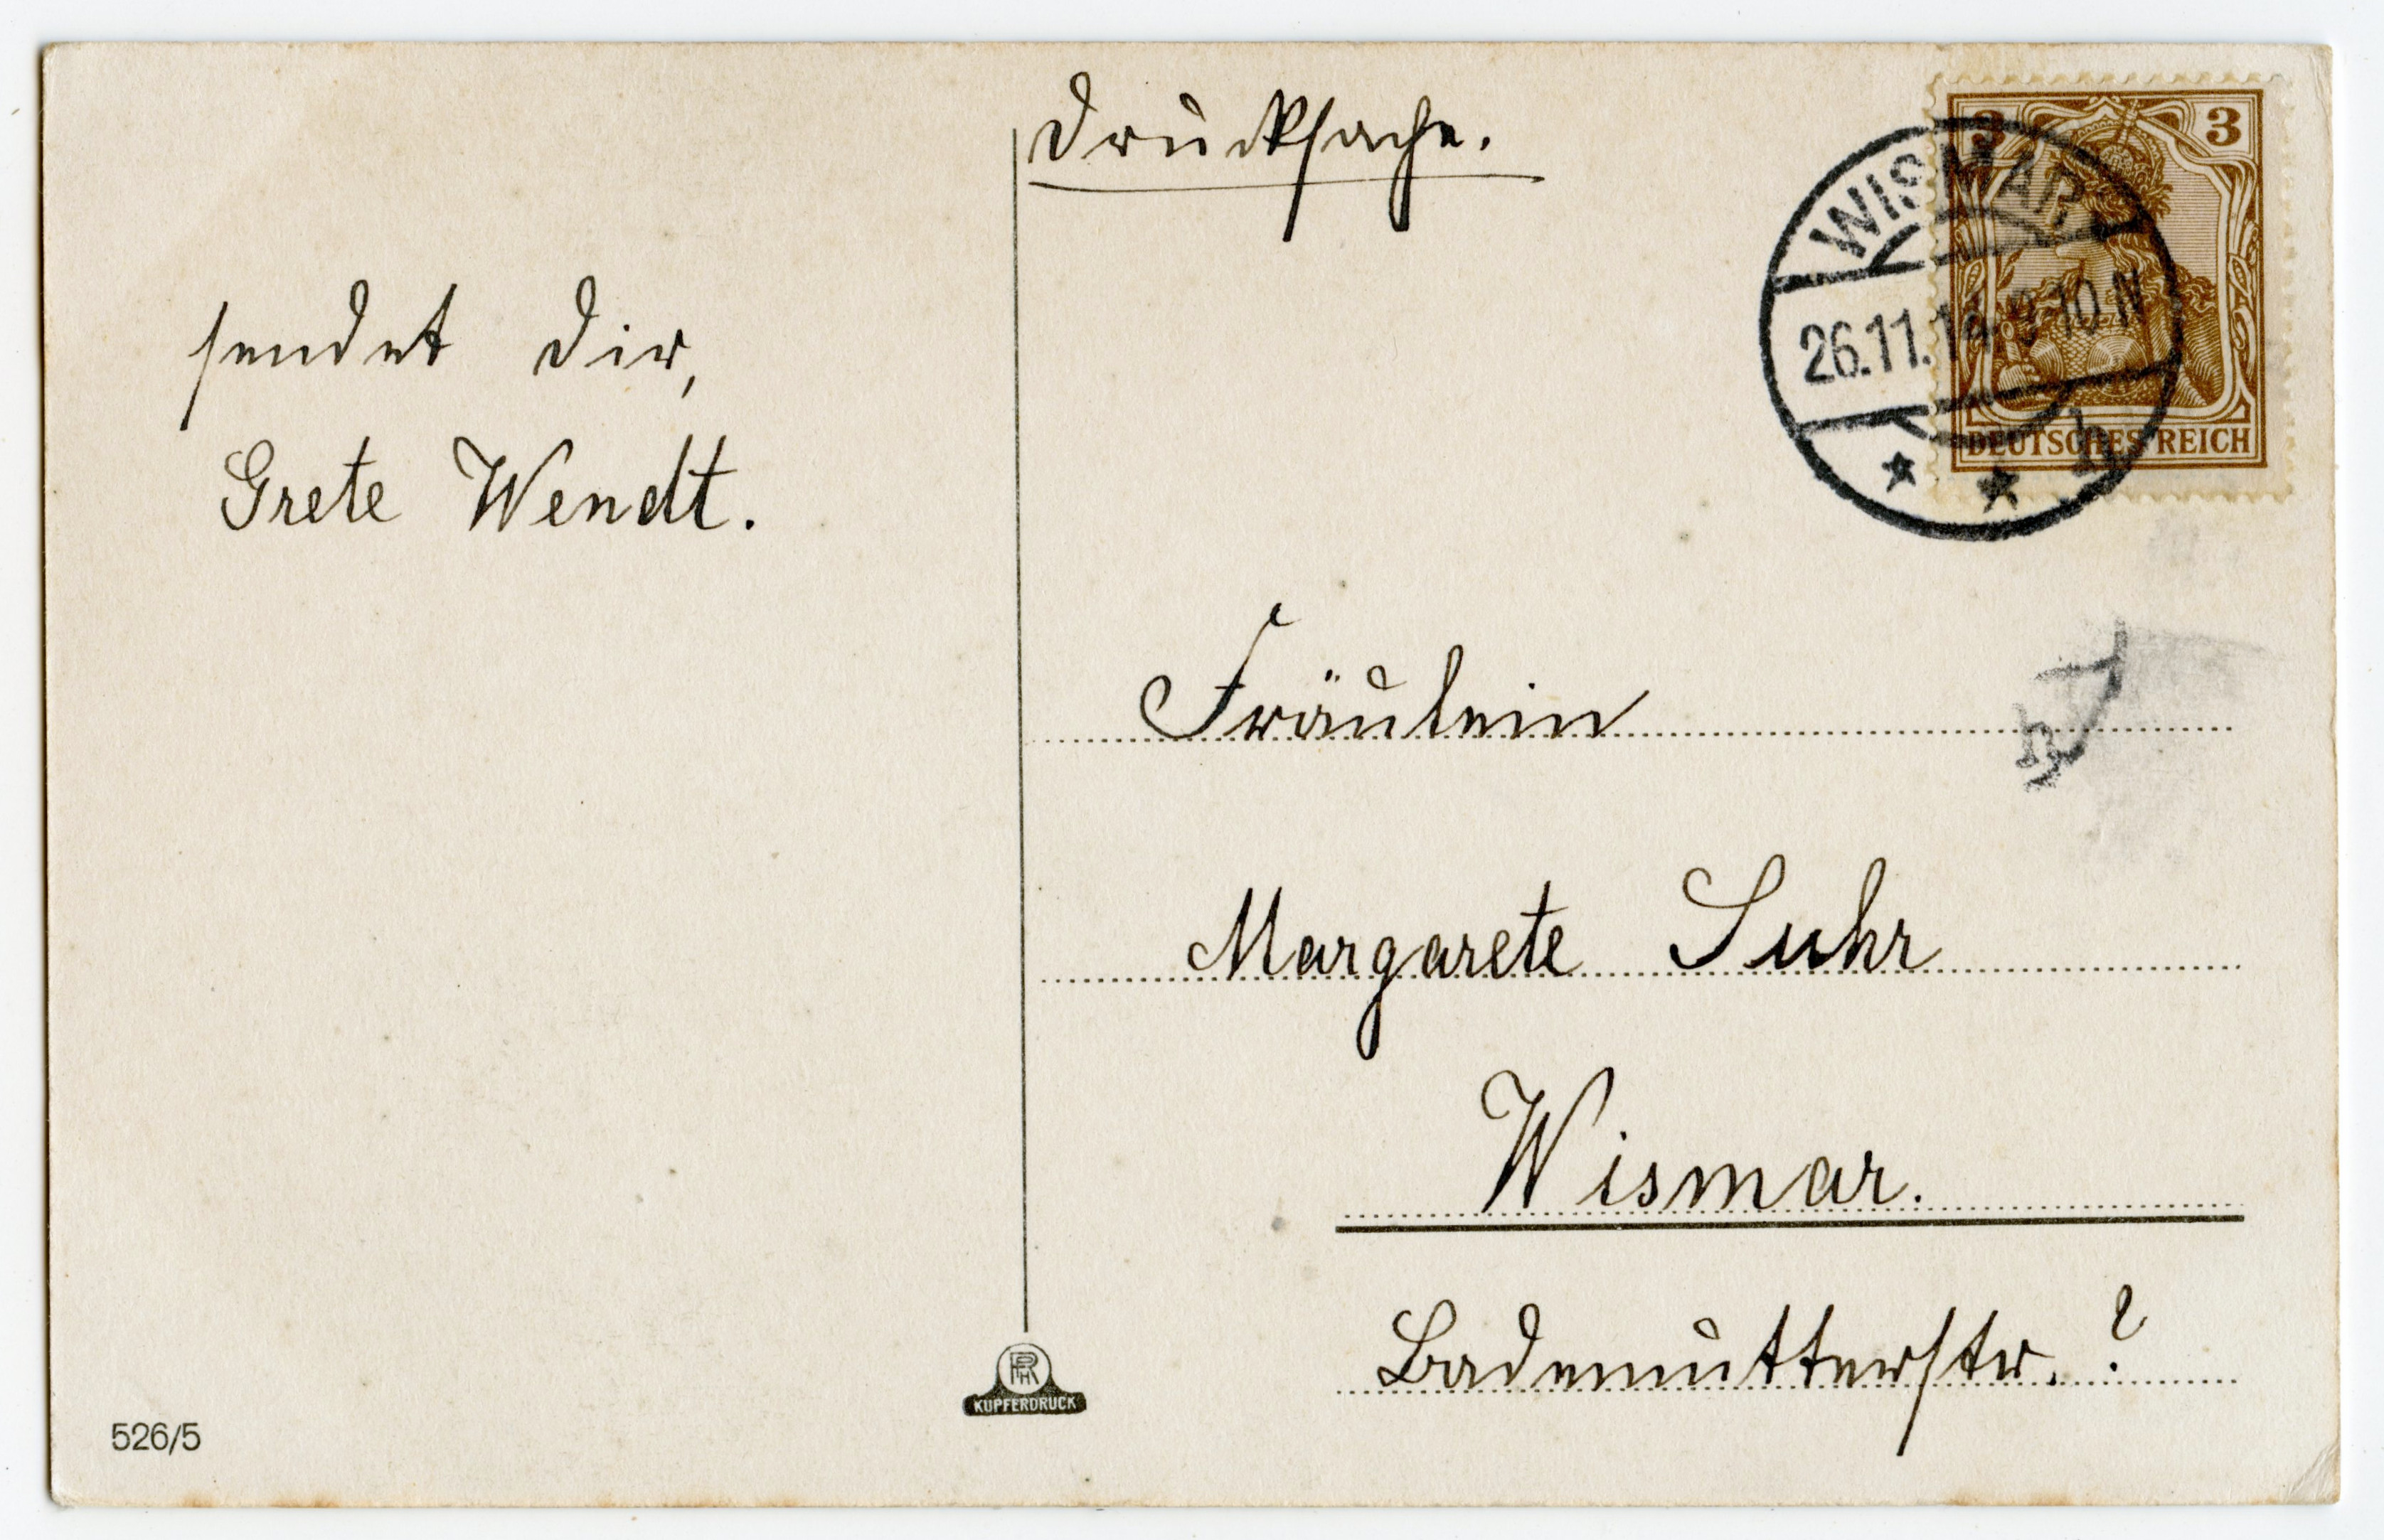 Drucksache.
sendet Dir,
Grete Wendt.
3 3
WISMAR
26.11.14. 9-10 N
* * h
DEUTSCHES REICH
Fräulein
Margarete Suhr
Wismar.
Bademutterstr. ?
KUPFERDRUCK
526/5